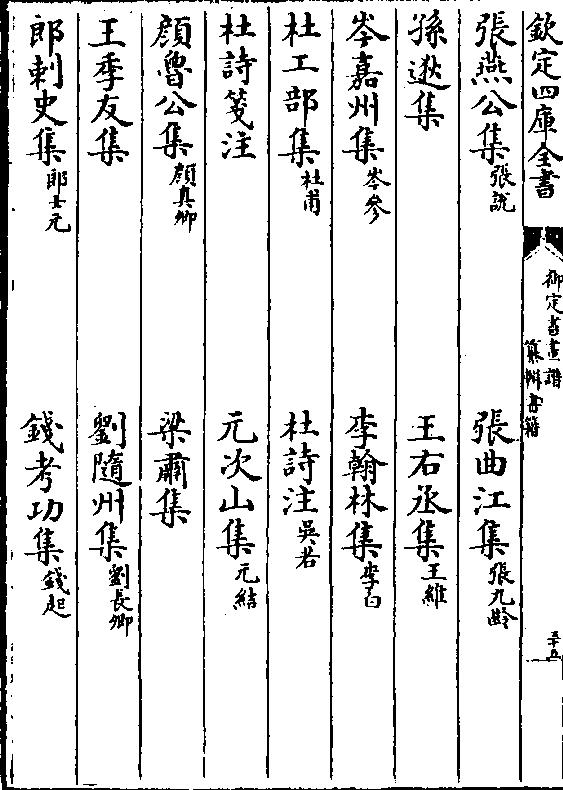 欽定四庫全書
御定書畫譜
纂輯書籍
五十五
張燕公集張說
張曲江集張九齡
孫逖集
王右丞集王維
岑嘉州集岑參
李翰林集李白
杜工部集杜甫
杜詩注吳若
杜詩箋注
元次山集元結
顏魯公集顏真卿
梁肅集
王季友集
劉隨州集劉長卿
郎刺史集郎士元
錢考功集錢起